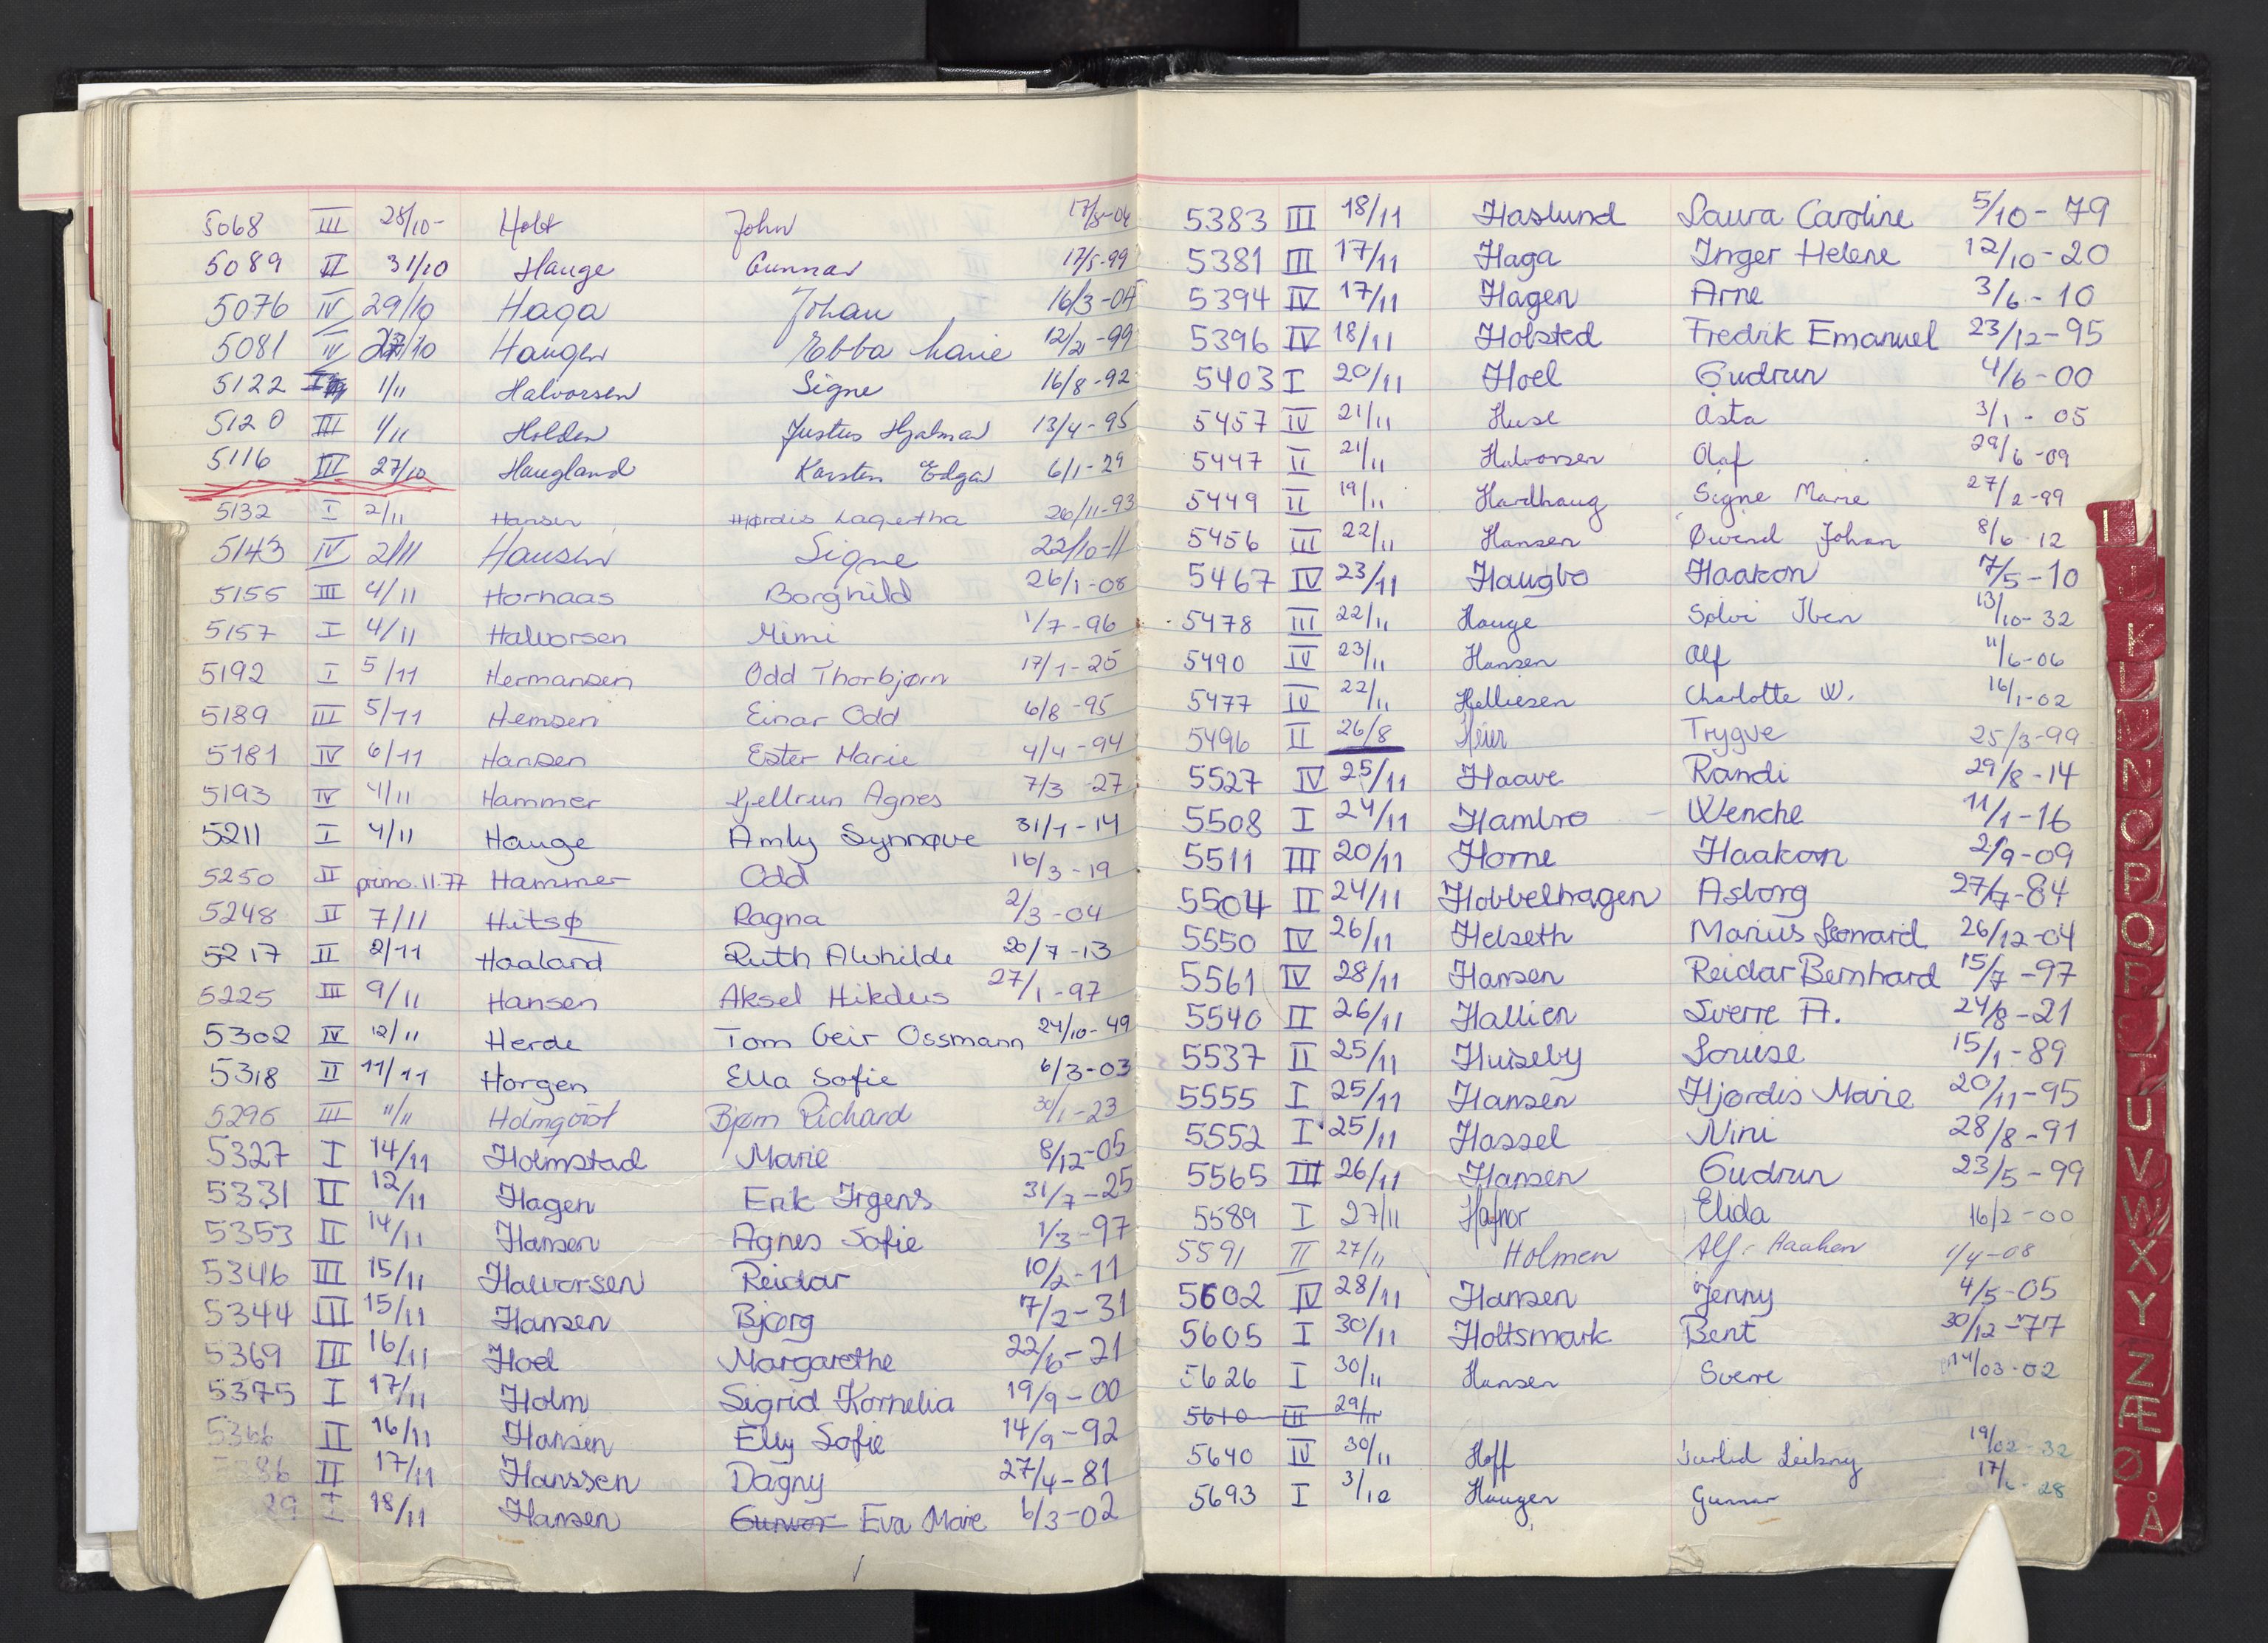 5068 III 28/10- Holt John 17/5-04
5089 II 31/10 Hauge Gunnar 17/5-99
5076 IV 29/10 Haga Johan 16/3-04
5081 IV /10 Haugen Ebba Marie 12/2-99
5122 1/11 Halvorsen Signe 16/8-92
5120 III 1/11 Holden Justus Hjalmar 13/4-95
5116 III 27/10 Haugland Karsten Edgar 6/1-29
5132 I 2/11 Hansen Hjørdis Lagertha 26/11-93
5143 IV 2/11 Hansen Signe 22/10-11
5155 III 4/11 Hornaas Borghild 26/1-08
5157 I 4/11 Halvorsen Mimi 1/7-96
5192 I 5/11 Hermansen Odd Thorbjørn 17/1-25
5189 III 5/11 Hemsen Einar Odd 6/8-95
5181 IV 6/11 Hansen Ester Marie 4/4-94
5193 IV 4/11 Hammer Kjellrun Agnes 7/3-27
5211 I 4/11 Hauge Amly Synnøve 31/1-14
5250 II primo.11.77 Hammer Odd 16/3-19
5248 II 7/11 Hitsø Ragna 2/3-04
5217 II 2/11 Haaland Ruth Alvhilde 20/7-13
5225 III 9/11 Hansen Aksel Hikdus 27/1-97
5302 IV 12/11 Herde Tom Geir Ossmann 24/10-49
5318 II 11/11 Horgen Ella Sofie 6/3-03
5296 III 11/11 Holmqvist Bjørn Richard 30/1-23
5327 I 14/11 Holmstad Marie 8/12-05
5331 II 12/11 Hagen Erik Irgens 31/7-25
5353 II 14/11 Hansen Agnes Sofie 1/3-97
5346 III 15/11 Halvorsen Reidar 10/2-11
5344 III 15/11 Hansen Bjørg 7/2-31
5369 III 16/11 Hoel Margarethe 22/6-21
5375 I 17/11 Holm Sigrid Kornelia 19/9-00
5366 II 16/11 Hansen Elly Sofie 14/9-92
II 17/11 Hanssen Dagny 27/4-81
29 I 18/11 Hansen Eva Marie 6/3-02
5383 III 18/11 Haslund Laura Caroline 5/10-79
5381 III 17/11 Haga Inger Helene 12/10-20
5394 IV 17/11 Hagen Arne 3/6-10
5396 IV 18/11 Holsted Fredrik Emanuel 23/12-95
5403 I 20/11 Hoel Gudrun 4/6-00
5457 IV 21/11 Huse Asta 3/1-05
5447 II 21/11 Halvorsen Olaf 29/6-09
5449 II 19/11 Hardhaug Signe Marie 27/2-99
5456 III 22/11 Hansen Øivind Johan 8/6-12
5467 IV 23/11 Haugbo Haakon 7/5-10
5478 III 22/11 Hauge Solvi Iben 13/10-32
5490 IV 23/11 Hansen Alf 11/6-06
5477 IV 22/11 Helliesen Charlotte W. 16/1-02
5496 II 26/8 Heier Trygve 25/3-99
5527 IV 25/11 Haave Randi 29/8-14
5508 I 24/11 Hambro Wenche 11/1-16
5511 III 20/11 Horne Haakon 2/9-09
5504 II 24/11 Hobbelhagen Asborg 27/7-84
5550 IV 26/11 Helseth Marius Leonard 26/12-04
5561 IV 28/11 Hansen Reidar Bernhard 15/7-97
5540 II 26/11 Hallien Sverre A. 24/8-21
5537 II 25/11 Huiseby Louise 15/1-89
5555 I 25/11 Hansen Hjørdis Marie 20/11-95
5552 I 25/11 Hassel Nini 28/8-91
5565 III 26/11 Hansen Gudrun 23/5-99
5589 I 27/11 Hafnor Elida 16/2-00
5591 II 27/11 Holmen Alf-Haakon 1/4-08
5602 IV 28/11 Hansen Jenny 4/5-05
5605 I 30/11 Holtsmark Bent 30/12-77
5626 I 30/11 Hansen Sverre 14/03-02
5610 III 29/11
5640 IV 30/11 Hoff 19/02-32
5693 I 3/12 Haugen Gunnar 17/6-28
I
K
L
N
O
P
Q
R
T
U
V
W
X
Y
Z
Æ
Ø
Å